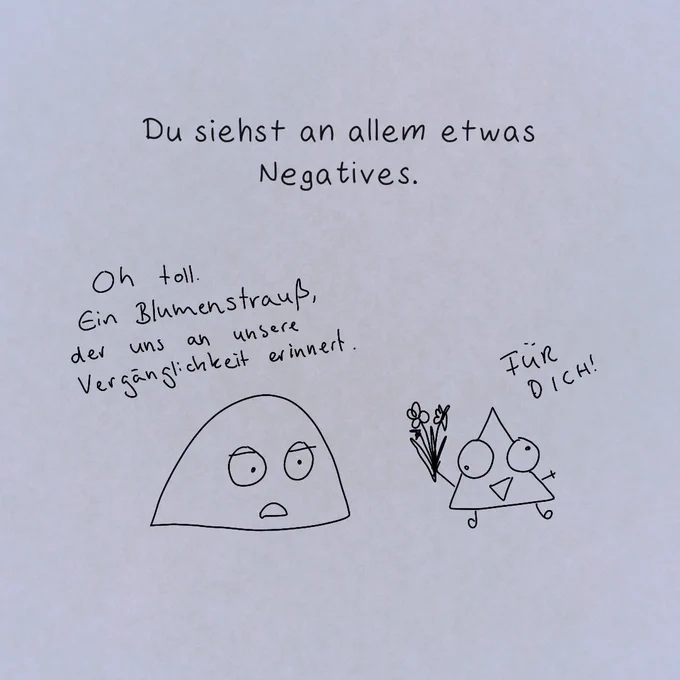 Du siehst an allem etwas
Negatives.
Oh toll.
Ein Blumenstrauß,
der uns an unsere
Vergänglichkeit erinnert.
FÜR
DICH!